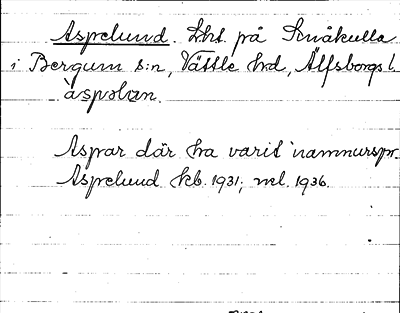 Aspelund. Lht på Småkulla
i Bergum s:n, Vättle hd, Älfsborgs l.
Aspar där ha varit namnurspr.
Aspelund kb. 1931; ml. 1936.